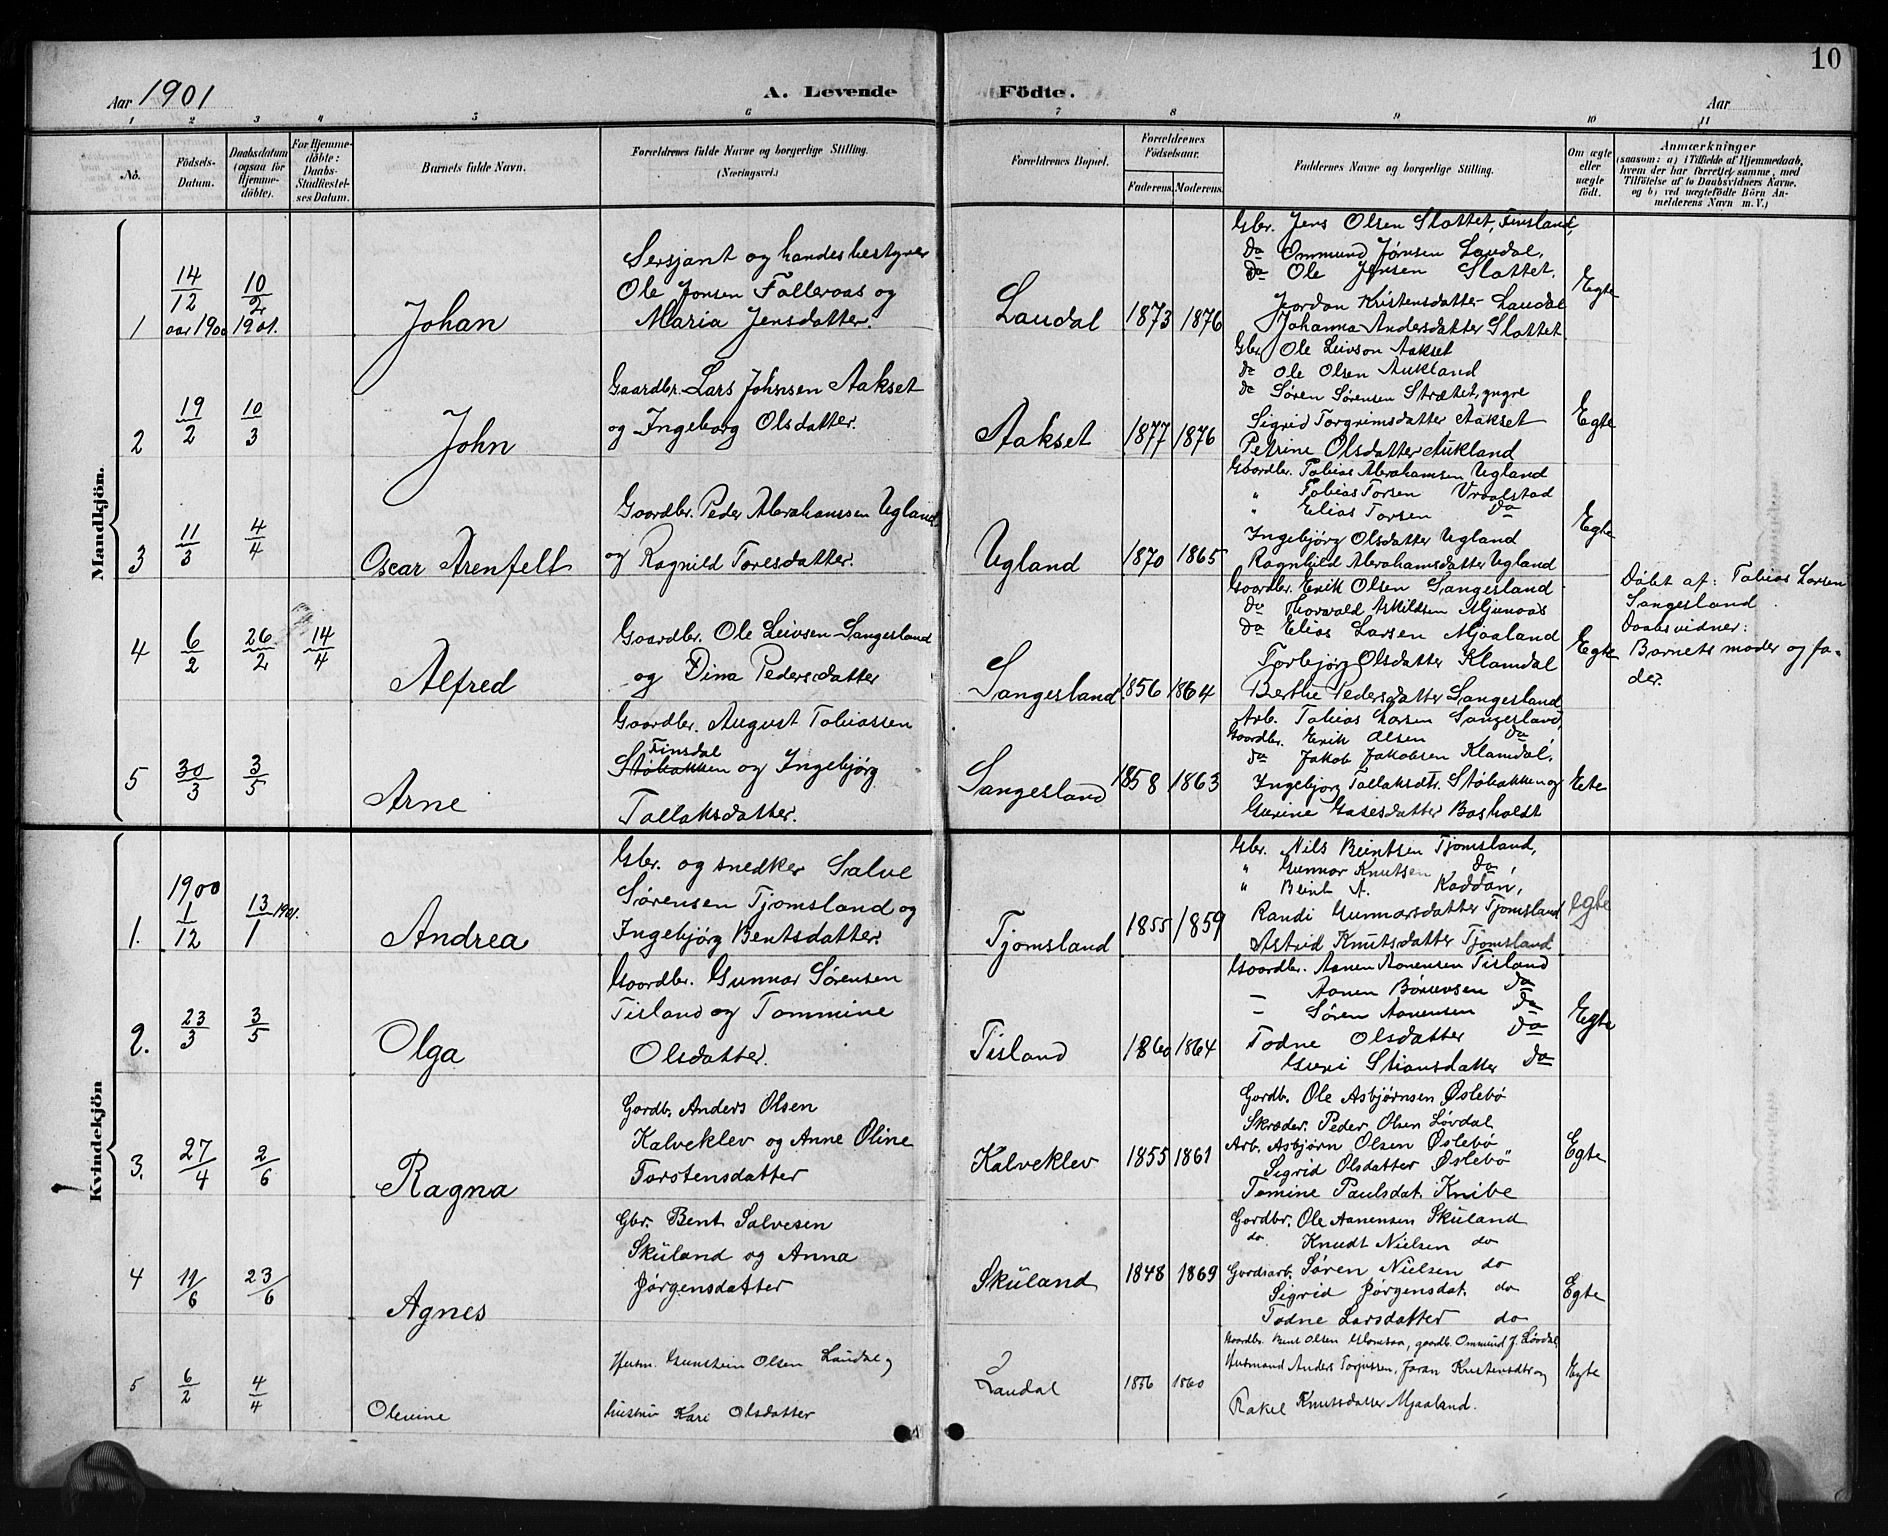 10
Aar 1901
A. Levende Födte.
Aar
1 2 3 4 5 6 7 8 9 10 11
No.
Födsels-Datum.
Daabsdatum (ogsaa för Hjemmedöbte).
For Hjemmedöbte: Daabs-Stadfæstelses Datum.
Barnets fulde Navn.
Forældrenes fulde Navne og borgerlige Stilling. (Næringsvei.)
Forældrenes Bopæl.
Forældrenes Födselsaar.
Faderens. Moderens.
Faddernes Navne og borgerlige Stilling.
Om ægte eller uægte födt.
Anmærkninger
(saasom: a) i Tilfælde af Hjemmedaab,
hvem der har forrettet samme, med
Tilföielse af to Daabsvidners Navne,
og b) ved uægtefödte Börn An-
melderens Navn m. V.)
Mandkjön.
1
14/12 aar 1900
10/2 1901.
Johan
Sersjant og handesbestyrer
Ole Jonsen Falleraas og
Maria Jensdatter.
Laudal
1873 1876
Gbr. Jens Olsen Slottet, Finsland,
do Ommund Jønsen Laudal,
do Ole Jensen Slattet.
Jordan Kristensdatter Laudal
Johanna Andersdatter Slattet
Egte
2
19/2
10/3
John
Gaardbr. Lars Johnsen Aakset
og Ingeborg Olsdatter.
Aakset
1877 1876
Gbr. Ole Leivson Aakset
do Ole Olsen Aukland
do Søren Sørensen Strætet, yngre
Sigrid Torgrimsdatter Aakset
Petrine Olsdatter Aukland
Egte
3
11/3
4/4
Oscar Arenfelt
Gaardbr. Peder Abrahamsen Ugland
og Ragnild Toresdatter.
Ugland
1870 1865
Gaardbr. Tobias Abrahamsen Ugland
" Tobias Torsen Vraalstad
" Elias Torsen do
Ingebjørg Olsdatter Ugland
Ragnhild Abrahamsdatter Ugland
Egte
4
6/2
26/2
14/4
Alfred
Gaardbr. Ole Leivsen Sangesland
og Dina Pedersdatter
Sangesland
1856 1864
Gaardbr. Erik Olsen Sangesland
do Thorvald Askildsen Mjunaas
do Elias Larsen Mjaaland
Torbjørg Olsdatter Klamdal
Berthe Pedersdatter Sangesland
Egte
Døbt af: Tobias Larsen
Sangesland
Daabsvidner:
Barnets moder og fa-
der.
5
30/3
3/5
Arne
Gaardbr. August Tobiassen
Finsdal
Støbakken og Ingebjørg
Tallaksdatter.
Sangesland
1858 1863
Arb. Tobias Larsen Sangesland,
Gaardbr. Erik Olsen do
do Jakob Jakobsen Klamdal,
Ingebjørg Tallaksdtr. Støbakken og
Gurine Gasesdatter Basholdt
Ekte
Kvindekjön
1.
1900 1/12
13/1 1901.
Andrea
Gbr. og snedker Salve
Sørensen Tjomsland og
Ingebjørg Bentsdatter.
Tjomsland
1855 1859
Gbr. Nils Beintsen Tjomsland,
" Gunnar Knutsen do,
" Beint A. Kaddan,
Randi Gunnarsdatter Tjomsland
Astrid Knutsdatter Tjomsland
Egte
2.
23/3
3/5
Olga
Gaardbr. Gunnar Sørensen
Tisland og Tommine
Olsdatter.
Tisland
1860 1864
Gaardbr. Aanen Aanensen Tisland
— Aanen Børuvsen do
— Søren Aanensen do
Todne Olsdatter do
Guri Stiansdatter do
Egte
3.
27/4
2/6
Ragna
Gordb. Anders Olsen
Kalveklev og Anne Oline
Torstensdatter
Kalveklev
1855 1861
Gordb. Ole Asbjørnsen Øslebø
Skræder. Peder Olsen Løvdal
Arb. Asbjørn Olsen Øslebø
Sigrid Olsdatter Øslebø
Tomine Paulsdat. Knibe
Egte
4
11/6
23/6
Agnes
Gbr. Bent Salvesen
Skuland og Anna
Jørgensdatter
Skuland
1848 1869
Gordbr. Ole Aanensen Skuland
do. Knudt Nielsen do
Gordsarb. Søren Nielsen do
Sigrid Jørgensdat. do
Todne Larsdatter do
Egte
5
6/2
4/4
Olevine
Husm. Gunstein Olsen Laudal og
hustru Kari Olsdatter
Laudal
1856 1860
Gaardbr. Bent Olsen Glomsaa, gaardb. Ommund J. Løvdal,
Husmand Anders Torjussen, Jaran Kristensdtr og
Rakel Knutsdatter Mjaaland.
Egte